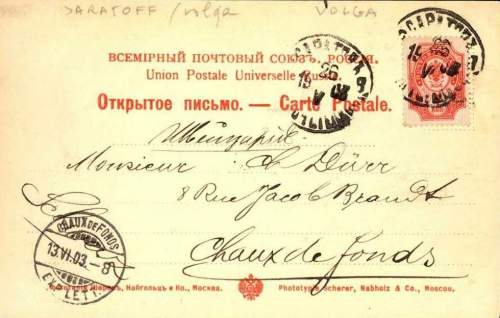 SARATOFF / volga VOLGA
ВСЕМІРНЫЙ ПОЧТОВЫЙ СОЮЗЪ. РОССІЯ.
Union Postale Universelle Russie.
Открытое письмо. — Carte Postale.
САРАТОВЪ
26
V 03
САРАТОВЪ
26
V 03
Швейцарія
Monsieur Ch Dürr
8 Rue Jacob Brandt
Chaux de fonds
CHAUX DE FONDS
13.VI.03. 8
EXP. LETT.
Фототипія Шереръ, Набгольцъ и Ко., Москва. Phototypie Scherer, Nabholz & Co., Moscou.